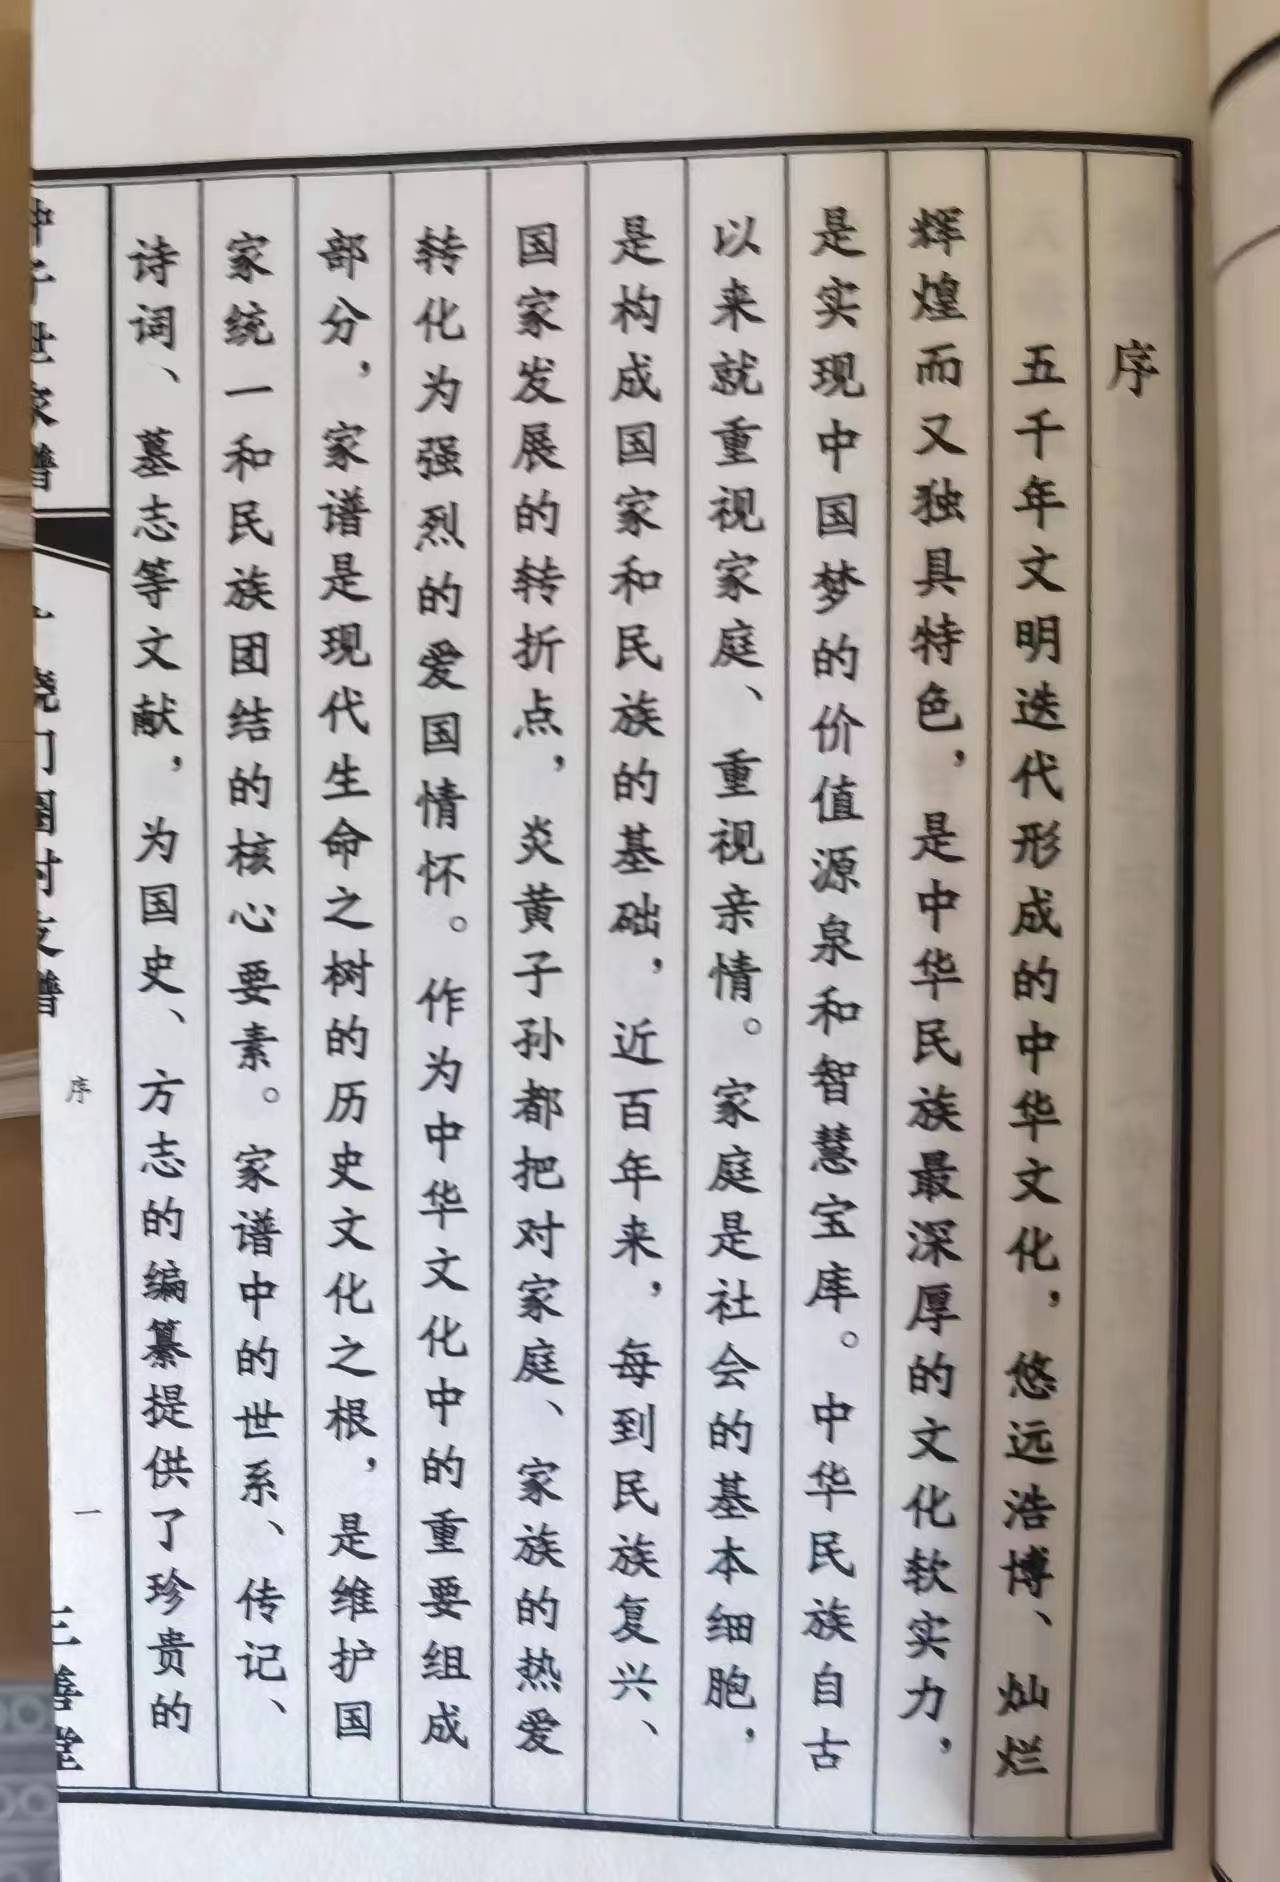 序
五千年文明迭代形成的中华文化，悠远浩博、灿烂
辉煌而又独具特色，是中华民族最深厚的文化软实力，
是实现中国梦的价值源泉和智慧宝库。中华民族自古
以来就重视家庭、重视亲情。家庭是社会的基本细胞，
是构成国家和民族的基础，近百年来，每到民族复兴、
国家发展的转折点，炎黄子孙都把对家庭、家族的热爱
转化为强烈的爱国情怀。作为中华文化中的重要组成
部分，家谱是现代生命之树的历史文化之根，是维护国
家统一和民族团结的核心要素。家谱中的世系、传记、
诗词、墓志等文献，为国史、方志的编纂提供了珍贵的
世家谱
门圈村支谱
序
一
三善堂